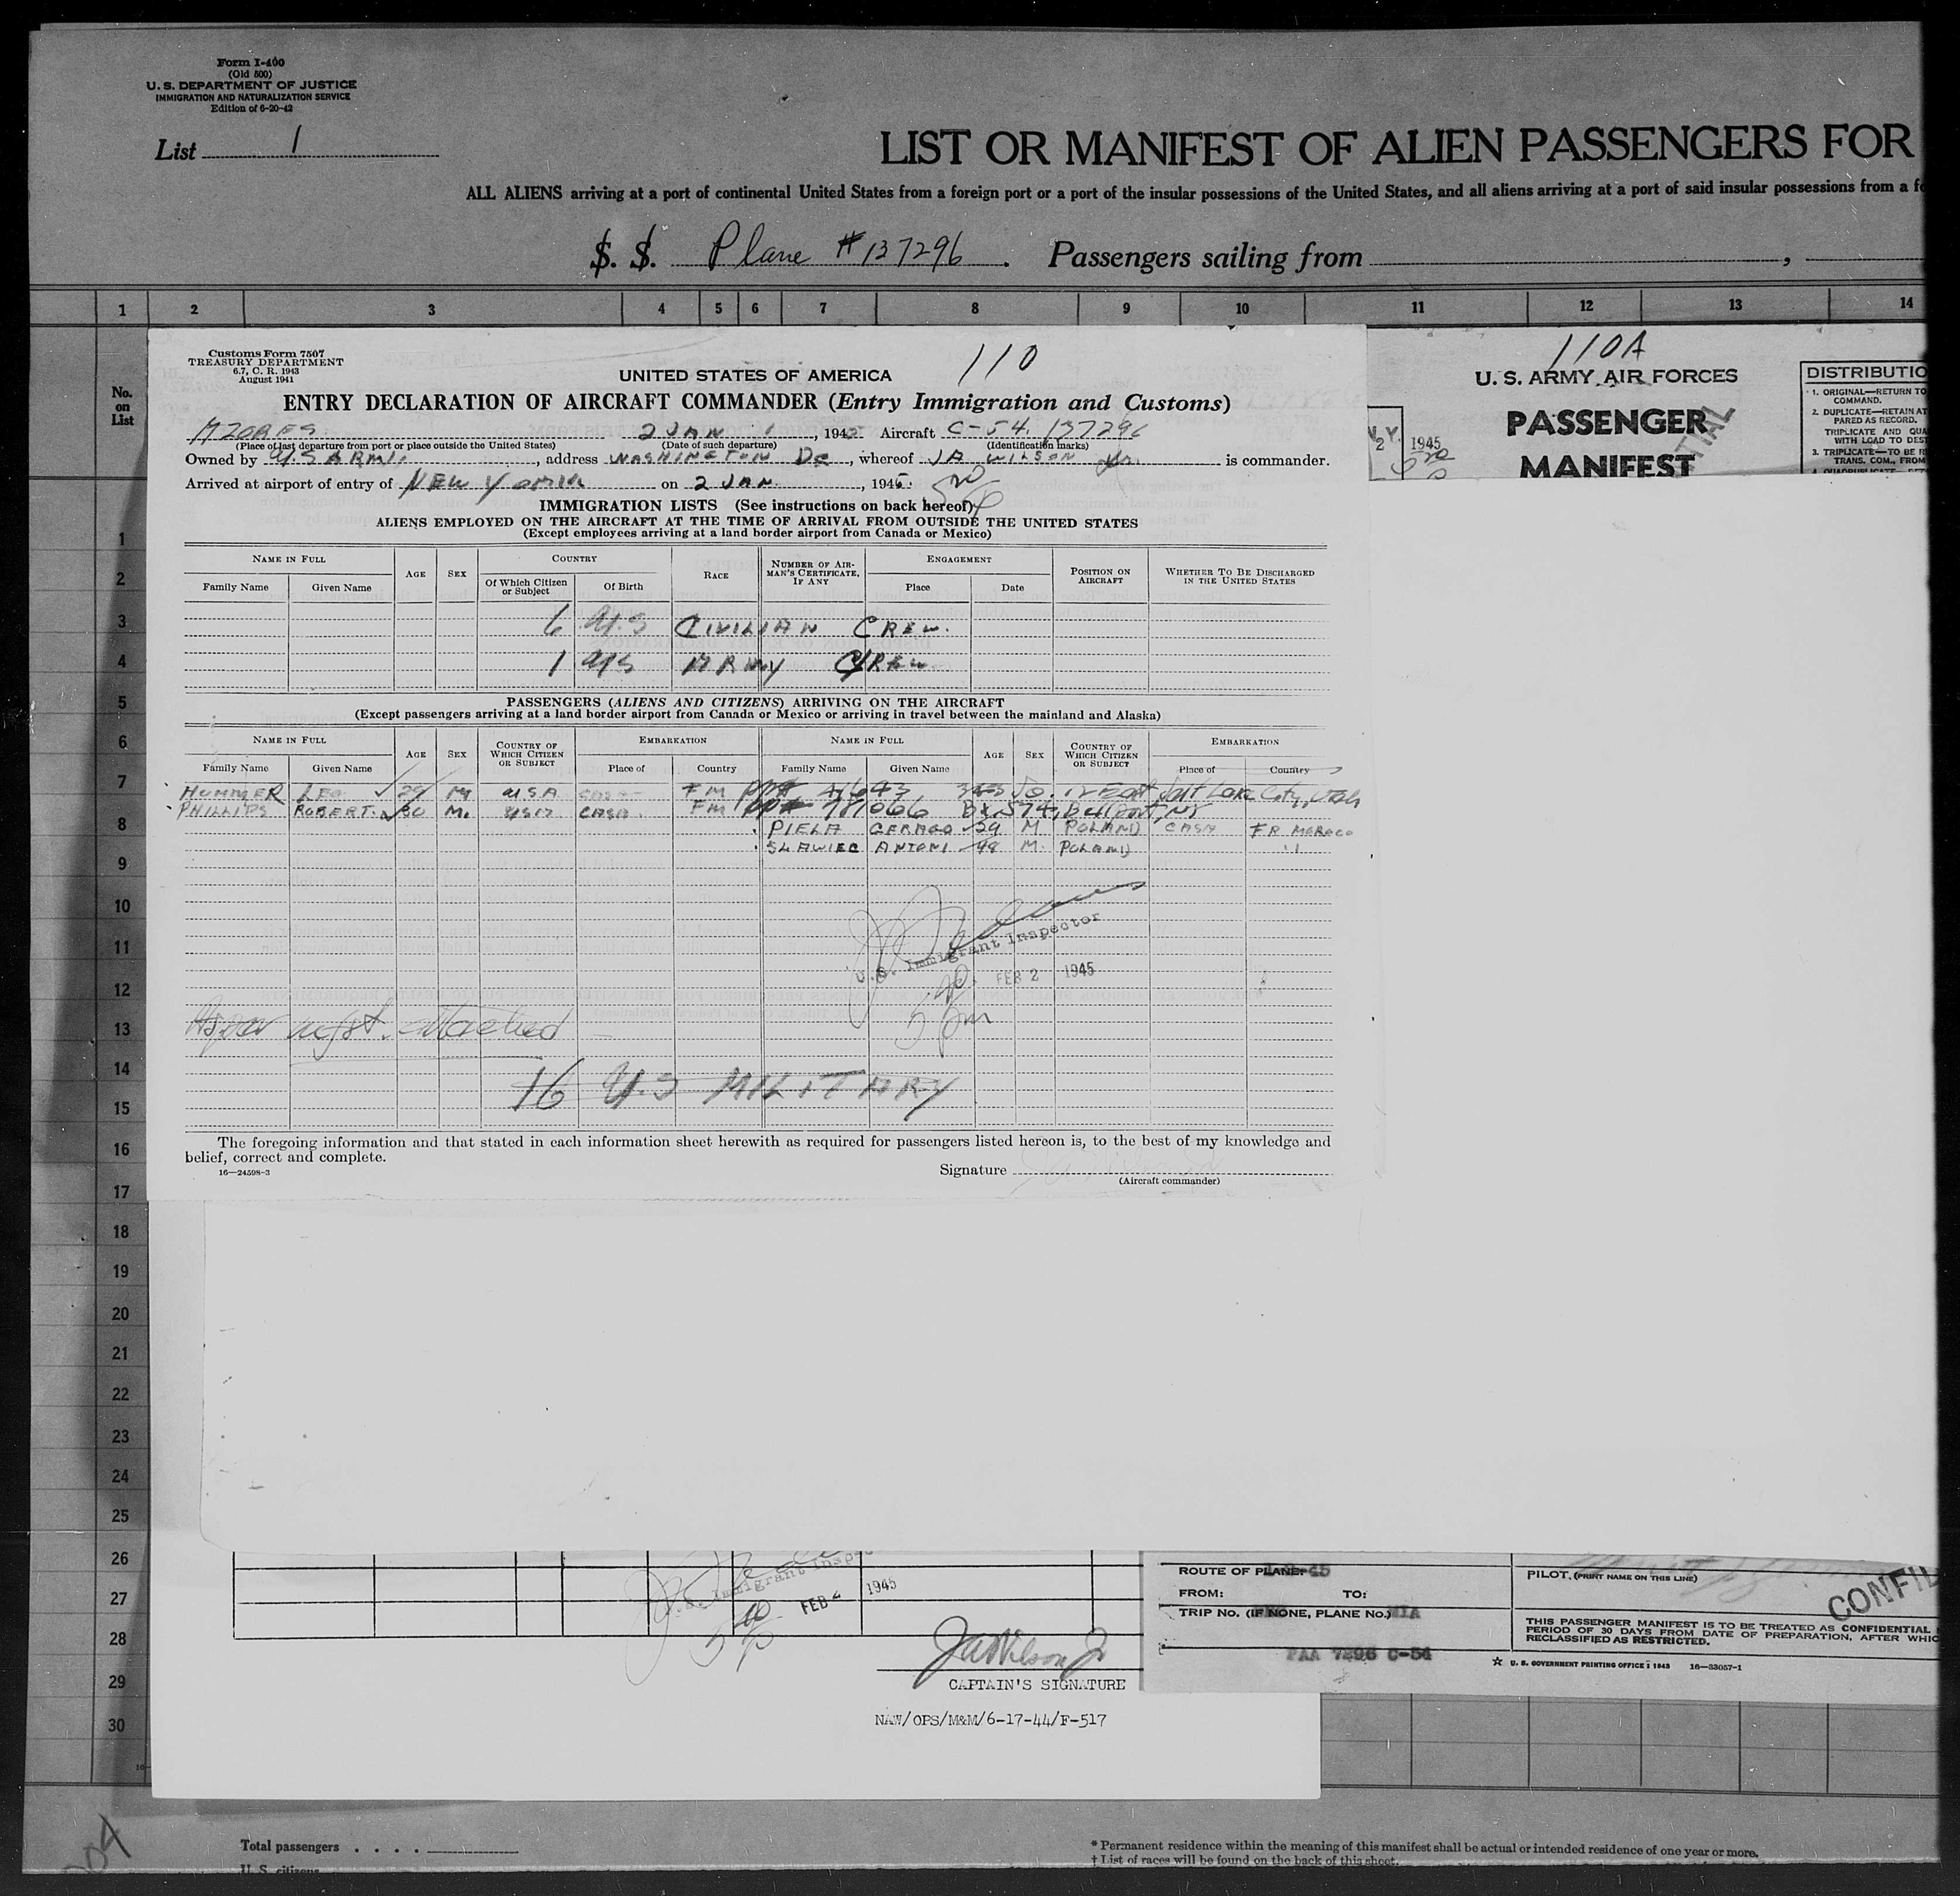 Form I-400
(Old 500)
U. S. DEPARTMENT OF JUSTICE
IMMIGRATION AND NATURALIZATION SERVICE
Edition of 6-20-42
List 1
LIST OR MANIFEST OF ALIEN PASSENGERS FOR
ALL ALIENS arriving at a port of continental United States from a foreign port or a port of the insular possessions of the United States, and all aliens arriving at a port of said insular possessions from a
S. S. Plane #137296. Passengers sailing from ,
1 2 3 4 5 6 7 8 9 10 11 12 13 14
No. on List
Customs Form 7507
TREASURY DEPARTMENT
6.7, C. R. 1943
August 1941
110
UNITED STATES OF AMERICA
ENTRY DECLARATION OF AIRCRAFT COMMANDER (Entry Immigration and Customs)
AZORES 2 JAN , 194 Aircraft C-54 137296
(Place of last departure from port or place outside the United States) (Date of such departure) (Identification marks)
Owned by U.S ARMY, address WASHINGTON DC, whereof JA WILSON Jr is commander.
Arrived at airport of entry of NEW YORK on 2 JAN, 1945.
IMMIGRATION LISTS (See instructions on back hereof)
ALIENS EMPLOYED ON THE AIRCRAFT AT THE TIME OF ARRIVAL FROM OUTSIDE THE UNITED STATES
(Except employees arriving at a land border airport from Canada or Mexico)
NAME IN FULL AGE SEX COUNTRY RACE NUMBER OF AIRMAN'S CERTIFICATE, IF ANY ENGAGEMENT POSITION ON AIRCRAFT WHETHER TO BE DISCHARGED IN THE UNITED STATES
Family Name Given Name Of Which Citizen or Subject Of Birth Place Date
6 U.S CIVILIAN CREW.
1 US ARMY CREW
PASSENGERS (ALIENS AND CITIZENS) ARRIVING ON THE AIRCRAFT
(Except passengers arriving at a land border airport from Canada or Mexico or arriving in travel between the mainland and Alaska)
NAME IN FULL AGE SEX COUNTRY OF WHICH CITIZEN OR SUBJECT EMBARKATION NAME IN FULL AGE SEX COUNTRY OF WHICH CITIZEN OR SUBJECT EMBARKATION
Family Name Given Name Place of Country Family Name Given Name Place of Country
HUMMER LEO 29 M U.S.A CASA FM PP# So. 12 East Salt Lake City, Utah
PHILLIPS ROBERT. 30 M. USA CASA. FM PP# 78066 Bx 574, Bellport, NY
PIELA 29 M POLAND CASA FR MOROCO
SLAWIEC ANTONI 48 M. POLAND "
U.S. Immigrant Inspector
FEB 2 1945
5 pm
As per mfst. attached
16 U.S MILITARY
The foregoing information and that stated in each information sheet herewith as required for passengers listed hereon is, to the best of my knowledge and
belief, correct and complete.
16—24598-3
Signature
(Aircraft commander)
110A
U. S. ARMY AIR FORCES
PASSENGER
MANIFEST
N. Y.
2 1945
DISTRIBUTIO
1. ORIGINAL—RETURN TO
COMMAND.
2. DUPLICATE—RETAIN AT
PARED AS RECORD.
TRIPLICATE AND QUA
WITH LOAD TO DEST
3. TRIPLICATE—TO BE R
TRANS. COM., FROM
1
2
3
4
5
6
7
8
9
10
11
12
13
14
15
16
17
18
19
20
21
22
23
24
25
26
27
28
29
30
U.S. Immigrant Inspe
FEB 2 1945
JA Wilson Jr
CAPTAIN'S SIGNATURE
NAW/OPS/M&M/6-17-44/F-517
ROUTE OF PLANE:
FROM: TO:
TRIP NO. (IF NONE, PLANE NO.) MIA
PAA 7296 C-54
PILOT. (PRINT NAME ON THIS LINE)
CONFI
THIS PASSENGER MANIFEST IS TO BE TREATED AS CONFIDENTIAL
PERIOD OF 30 DAYS FROM DATE OF PREPARATION, AFTER WHIC
RECLASSIFIED AS RESTRICTED.
U. S. GOVERNMENT PRINTING OFFICE : 1943 16—33057-1
Total passengers . . . .
U. S. citizens
* Permanent residence within the meaning of this manifest shall be actual or intended residence of one year or more.
† List of races will be found on the back of this sheet.